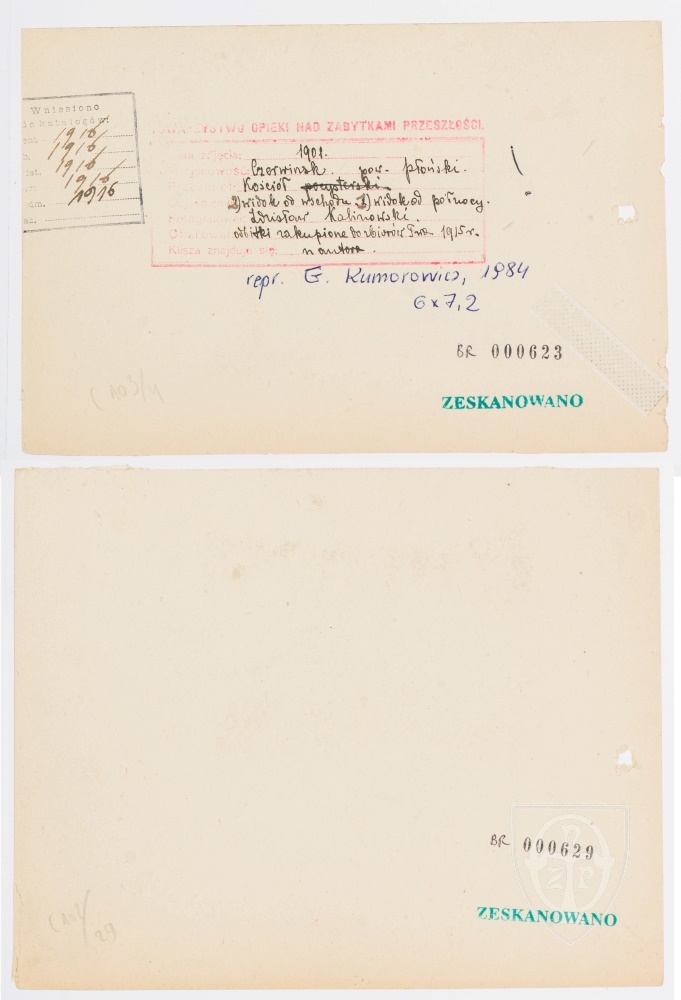 Wniesiono
do katalogów
1916
1916
1916
1916
1916
TOWARZYSTWO OPIEKI NAD ZABYTKAMI PRZESZŁOŚCI.
zdjęcia: 1901.
Czerwińsk. pow. płoński.
Kościół
2) widok od wschodu 1) widok od północy.
Zdzisław Kalinowski.
odbitki zakupione do zbiorów Twa 1915 r.
Klisza znajduje się: u autora.
repr. G. Kumorowicz, 1984
6 x 7,2
BR 000623
ZESKANOWANO
BR 000629
ZESKANOWANO